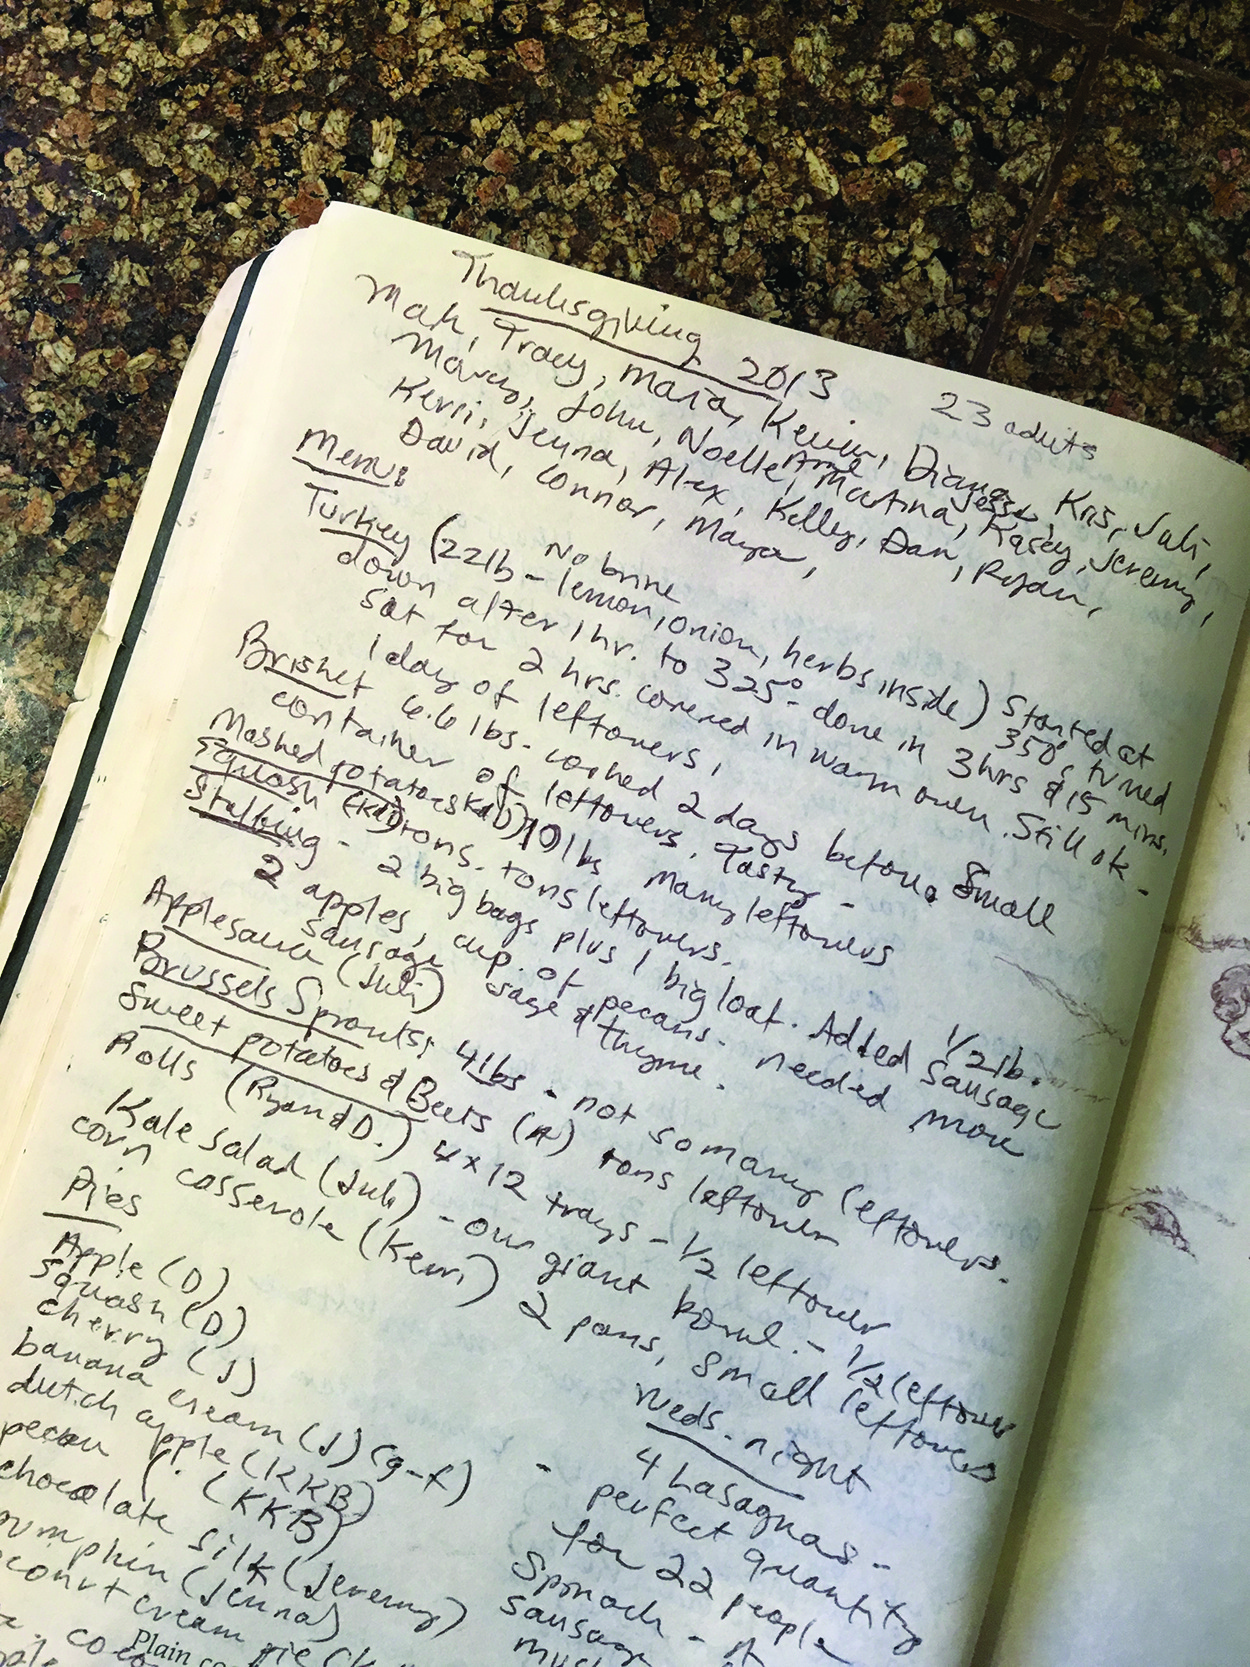 Thanksgiving 2013 23 adults
Mah, Tracy, Maria, Kevin, Diana, Kris, Juli,
Marcy, John, Noelle, Martina, Kasey, Jeremy,
Kerri, Jenna, Alex, Kelly, Dan, Ryan,
David, Connor, Maya,
Menu:
No brine
Turkey (22lb - lemon, onion, herbs inside) Started at 350°, turned
down after 1 hr. to 325° - done in 3 hrs & 15 mins.
Sat for 2 hrs. covered in warm oven. Still ok -
1 day of leftovers,
Brisket 6.6 lbs. cooked 2 days before. Small
container of leftovers. Tasty -
Mashed potatoes (K&D) 10 lbs many leftovers
Squash (K&D) tons. tons leftovers.
Stuffing - 2 big bags plus 1 big loaf. Added 1/2 lb. sausage
2 apples, cup of pecans. needed more
sausage sage & thyme.
Applesauce (Juli)
Brussels Sprouts, 4 lbs - not so many leftovers.
Sweet potatoes & Beets (A) tons leftover
Rolls (Ryan & D.) 4 x 12 trays - 1/2 leftover
Kale Salad (Juli) - our giant bowl - 1/2 leftover
corn casserole (Kerri) 2 pans, small leftovers
Pies
Apple (D)
squash (D)
cherry (J)
banana cream (J) (g-f)
dutch apple (KKB)
pecan (KKB)
chocolate silk (Jeremy)
pumpkin (Jenna)
cream pie
Weds. night
4 Lasagnas -
perfect quantity
for 22 people
Spinach - A
sausage
Plain